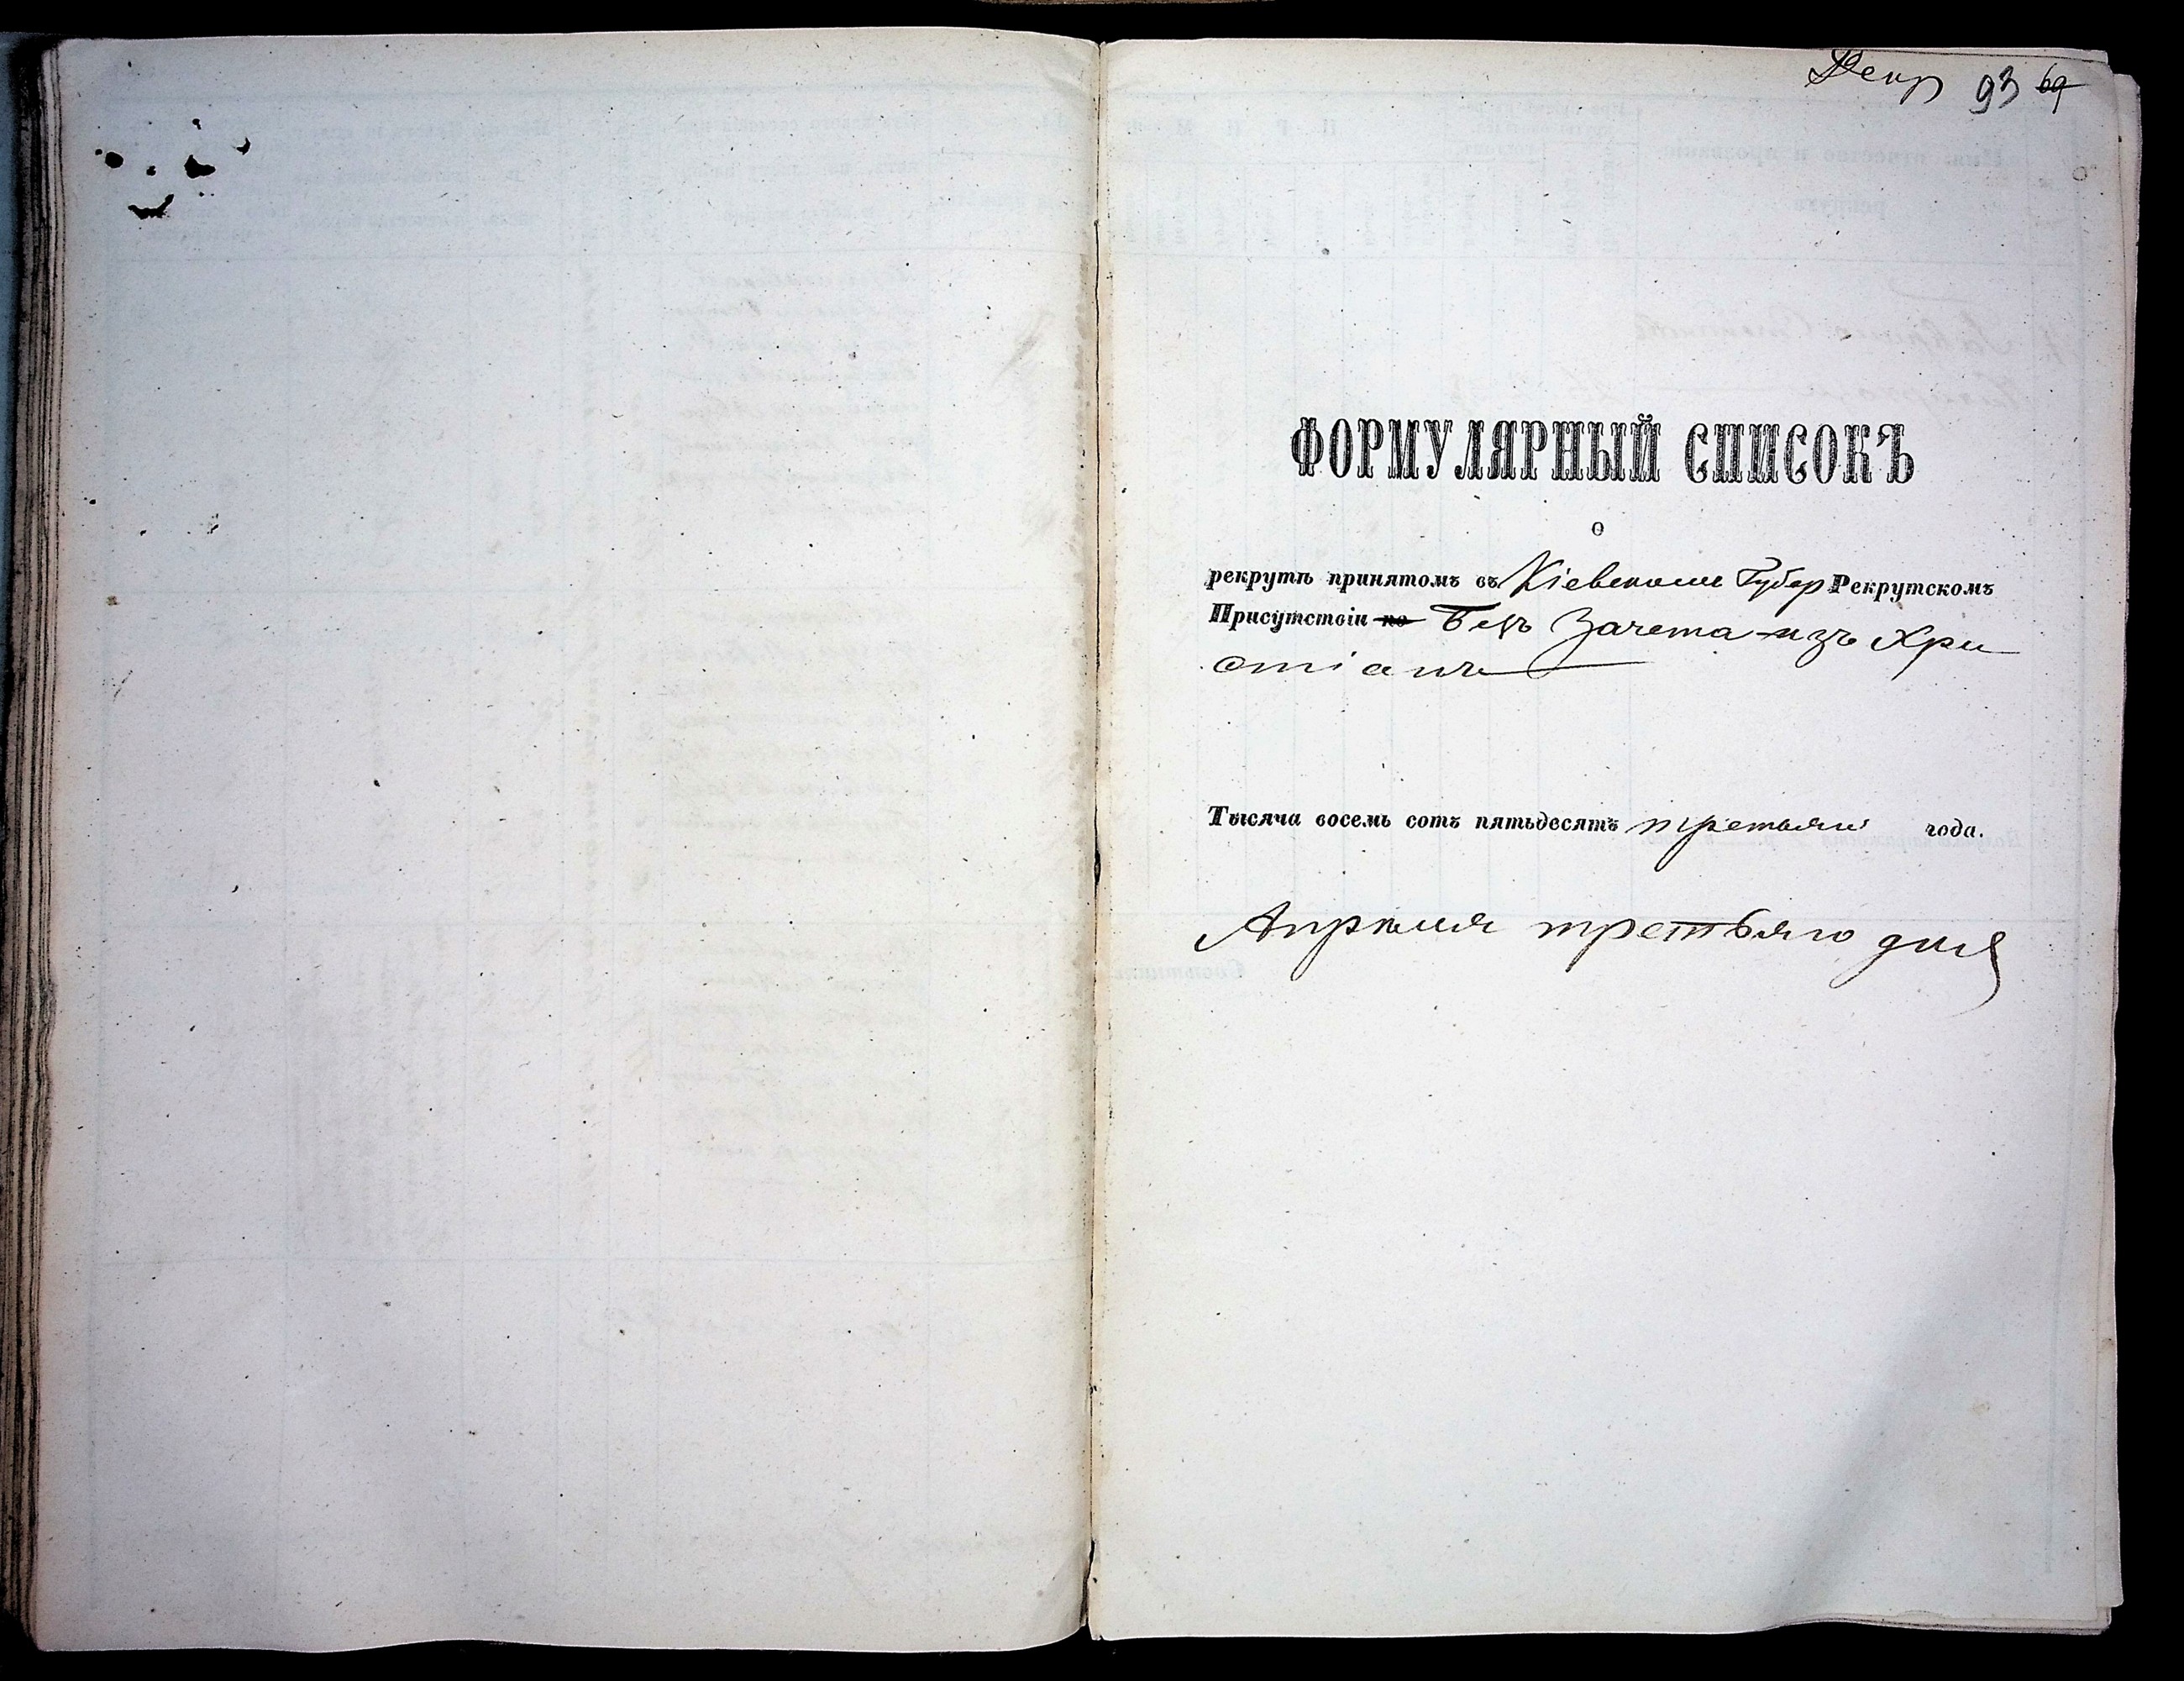 Рекр 93 69
ФОРМУЛЯРНЫЙ СПИСОКЪ
о
рекрутѣ принятомъ въ Кіевскомъ Губер Рекрутскомъ
Присутствіи по Безъ Зачета изъ Хри
стіанъ
Тысяча восемь сотъ пятьдесятъ третьяго года.
Апрѣля третьяго дня